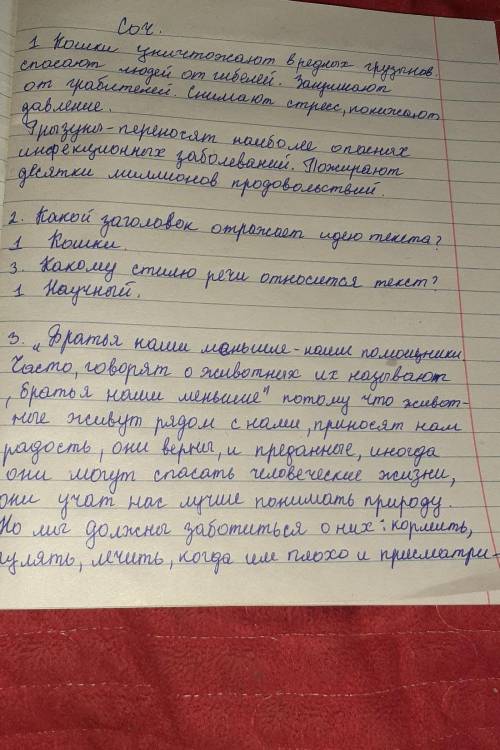 Соч.
1 Кошки уничтожают вредных грузынов.
спасают людей от гибелей. Защищают
от грабителей. Снимают стресс, понижают
давление.
Грызуны-переносят наиболее опасных
инфекционных заболеваний. Пожирают
десятки миллионов продовольствий.
2. Какой заголовок отражает идею текста?
1 Кошки.
3. Какому стилю речи относится текст?
1 Научный.
3. „Братья наши меньшие-наши помощники.
Часто, говорят о животных их называют
„братья наши меньшие" потому что живот-
ные живут рядом с нами, приносят нам
радость, они верны, и преданные, иногда
они могут спасать человеческие жизни,
они учат нас лучше понимать природу.
Но мы должны заботиться о них: кормить,
гулять, лечить, когда им плохо и присматри-